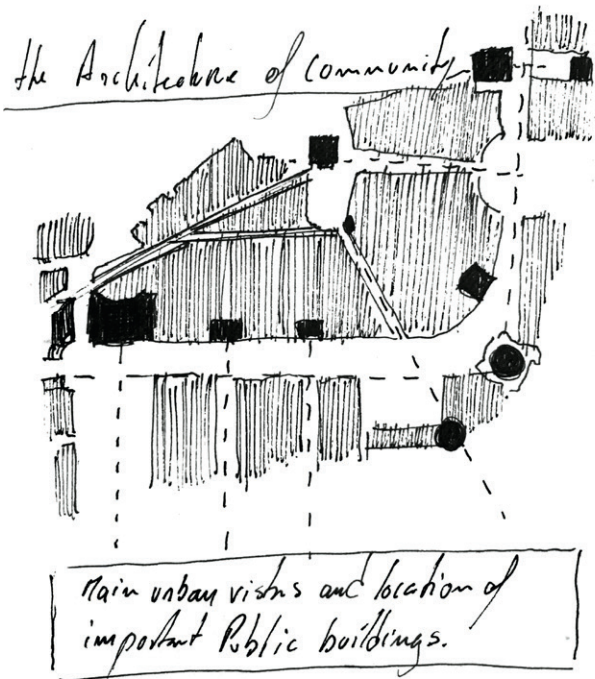 the Architecture of community
Main urban vistas and location of
important Public buildings.